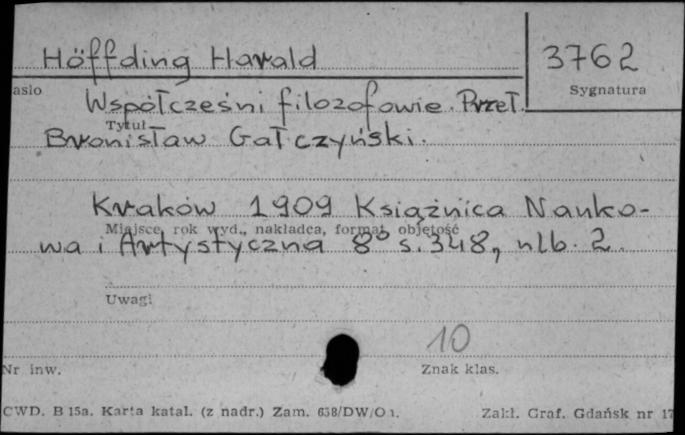 Höffding Harald 3762
asło Sygnatura
Współcześni filozofowie. Przeł.
Tytuł
Bronisław Gałczyński.
Kraków 1909 Książnica Nauko-
Miejsce, rok wyd., nakładca, format, objętość
wa i Artystyczna 8° s. 348, nlb. 2.
Uwagi
10
Nr inw. Znak klas.
CWD. B 15a. Karta katal. (z nadr.) Zam. 658/DW/O 1. Zakł. Graf. Gdańsk nr 17